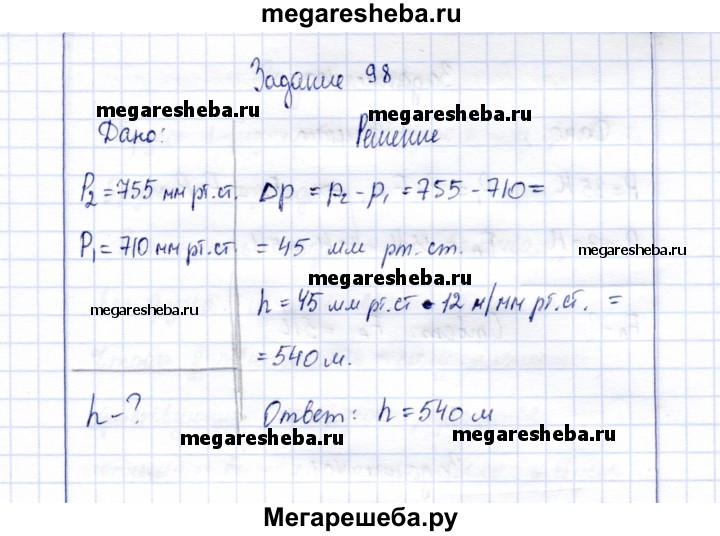 megaresheba.ru
Задание 98
megaresheba.ru
megaresheba.ru
Дано:
Решение
P₂ = 755 мм рт.ст.
Δp = p₂ - p₁ = 755 - 710 =
P₁ = 710 мм рт.ст.
= 45 мм рт. ст.
megaresheba.ru
megaresheba.ru
megaresheba.ru
h = 45 мм рт.ст • 12 м/мм рт.ст. =
= 540 м.
h - ?
Ответ: h = 540 м
megaresheba.ru
megaresheba.ru
Мегарешеба.ру